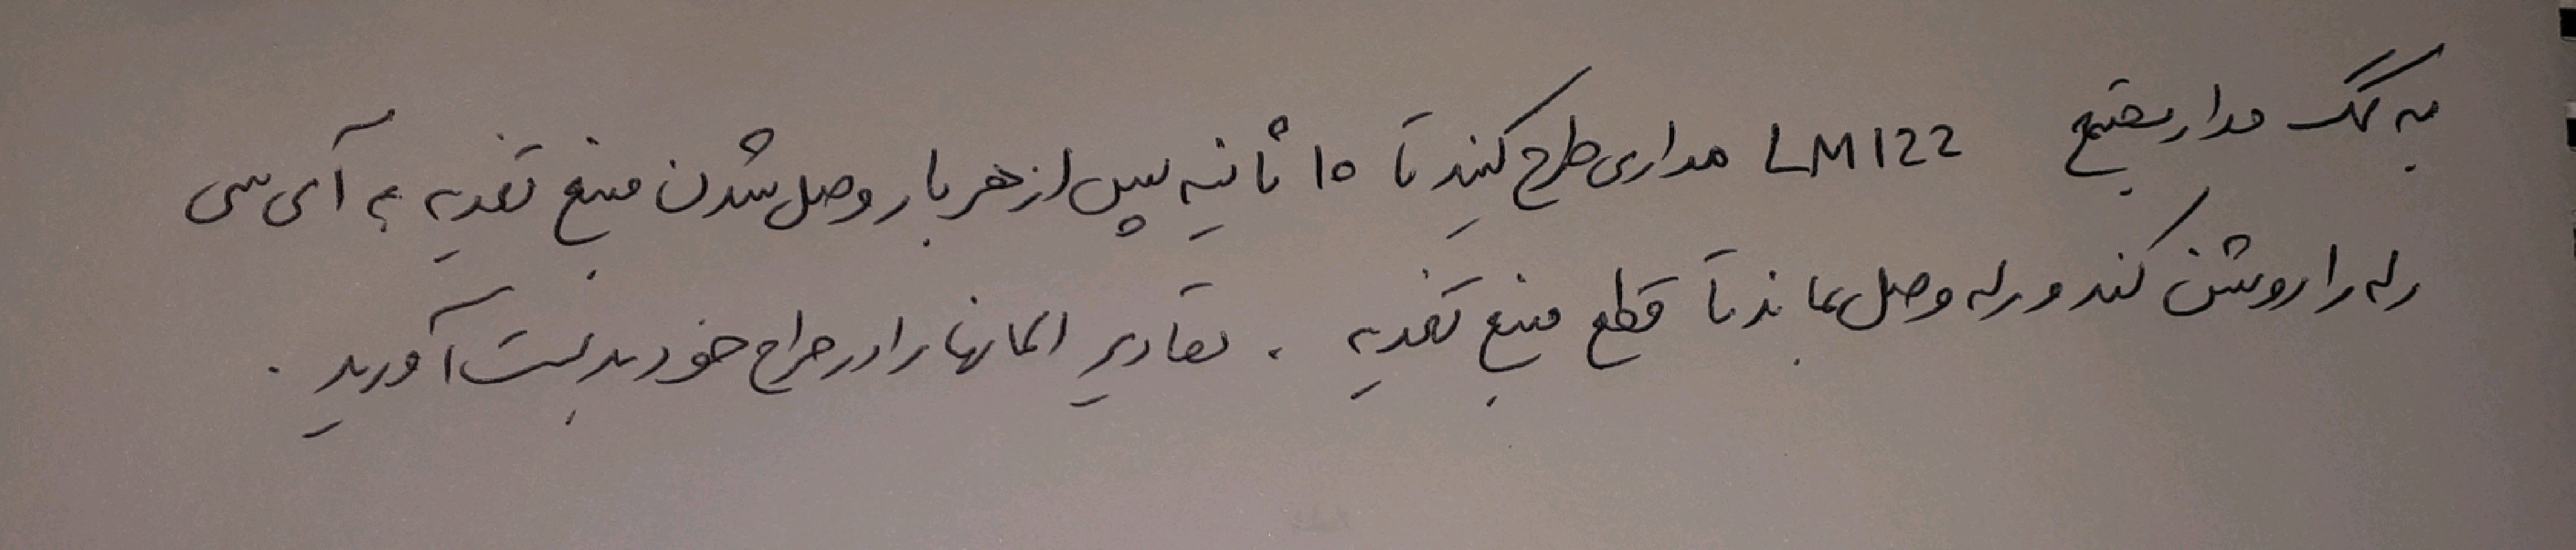 به کمک مدار مجتمع LM122 مداری طرح کنید تا ۱۵ ثانیه پس از هر بار وصل شدن منبع تغذیه به آی سی
رله را روشن کند و رله وصل بماند تا قطع منبع تغذیه . مقادیر المانها را در طراح خود بدست آورید .